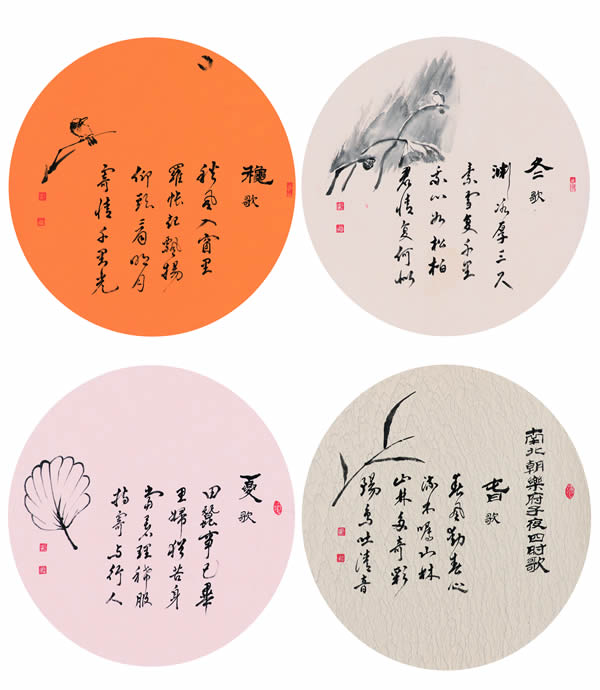 南北朝樂府子夜四時歌
春歌
春風動春心
流木囑山林
山林多奇彩
陽鳥吐清音
夏歌
田蠶事已畢
思婦猶苦身
當暑理絺服
持寄与行人
穐歌
秋風入窗里
羅帳起飄揚
仰頭看明月
寄情千里光
冬歌
淵冰厚三尺
素雪复千里
我心如松柏
君情复何似